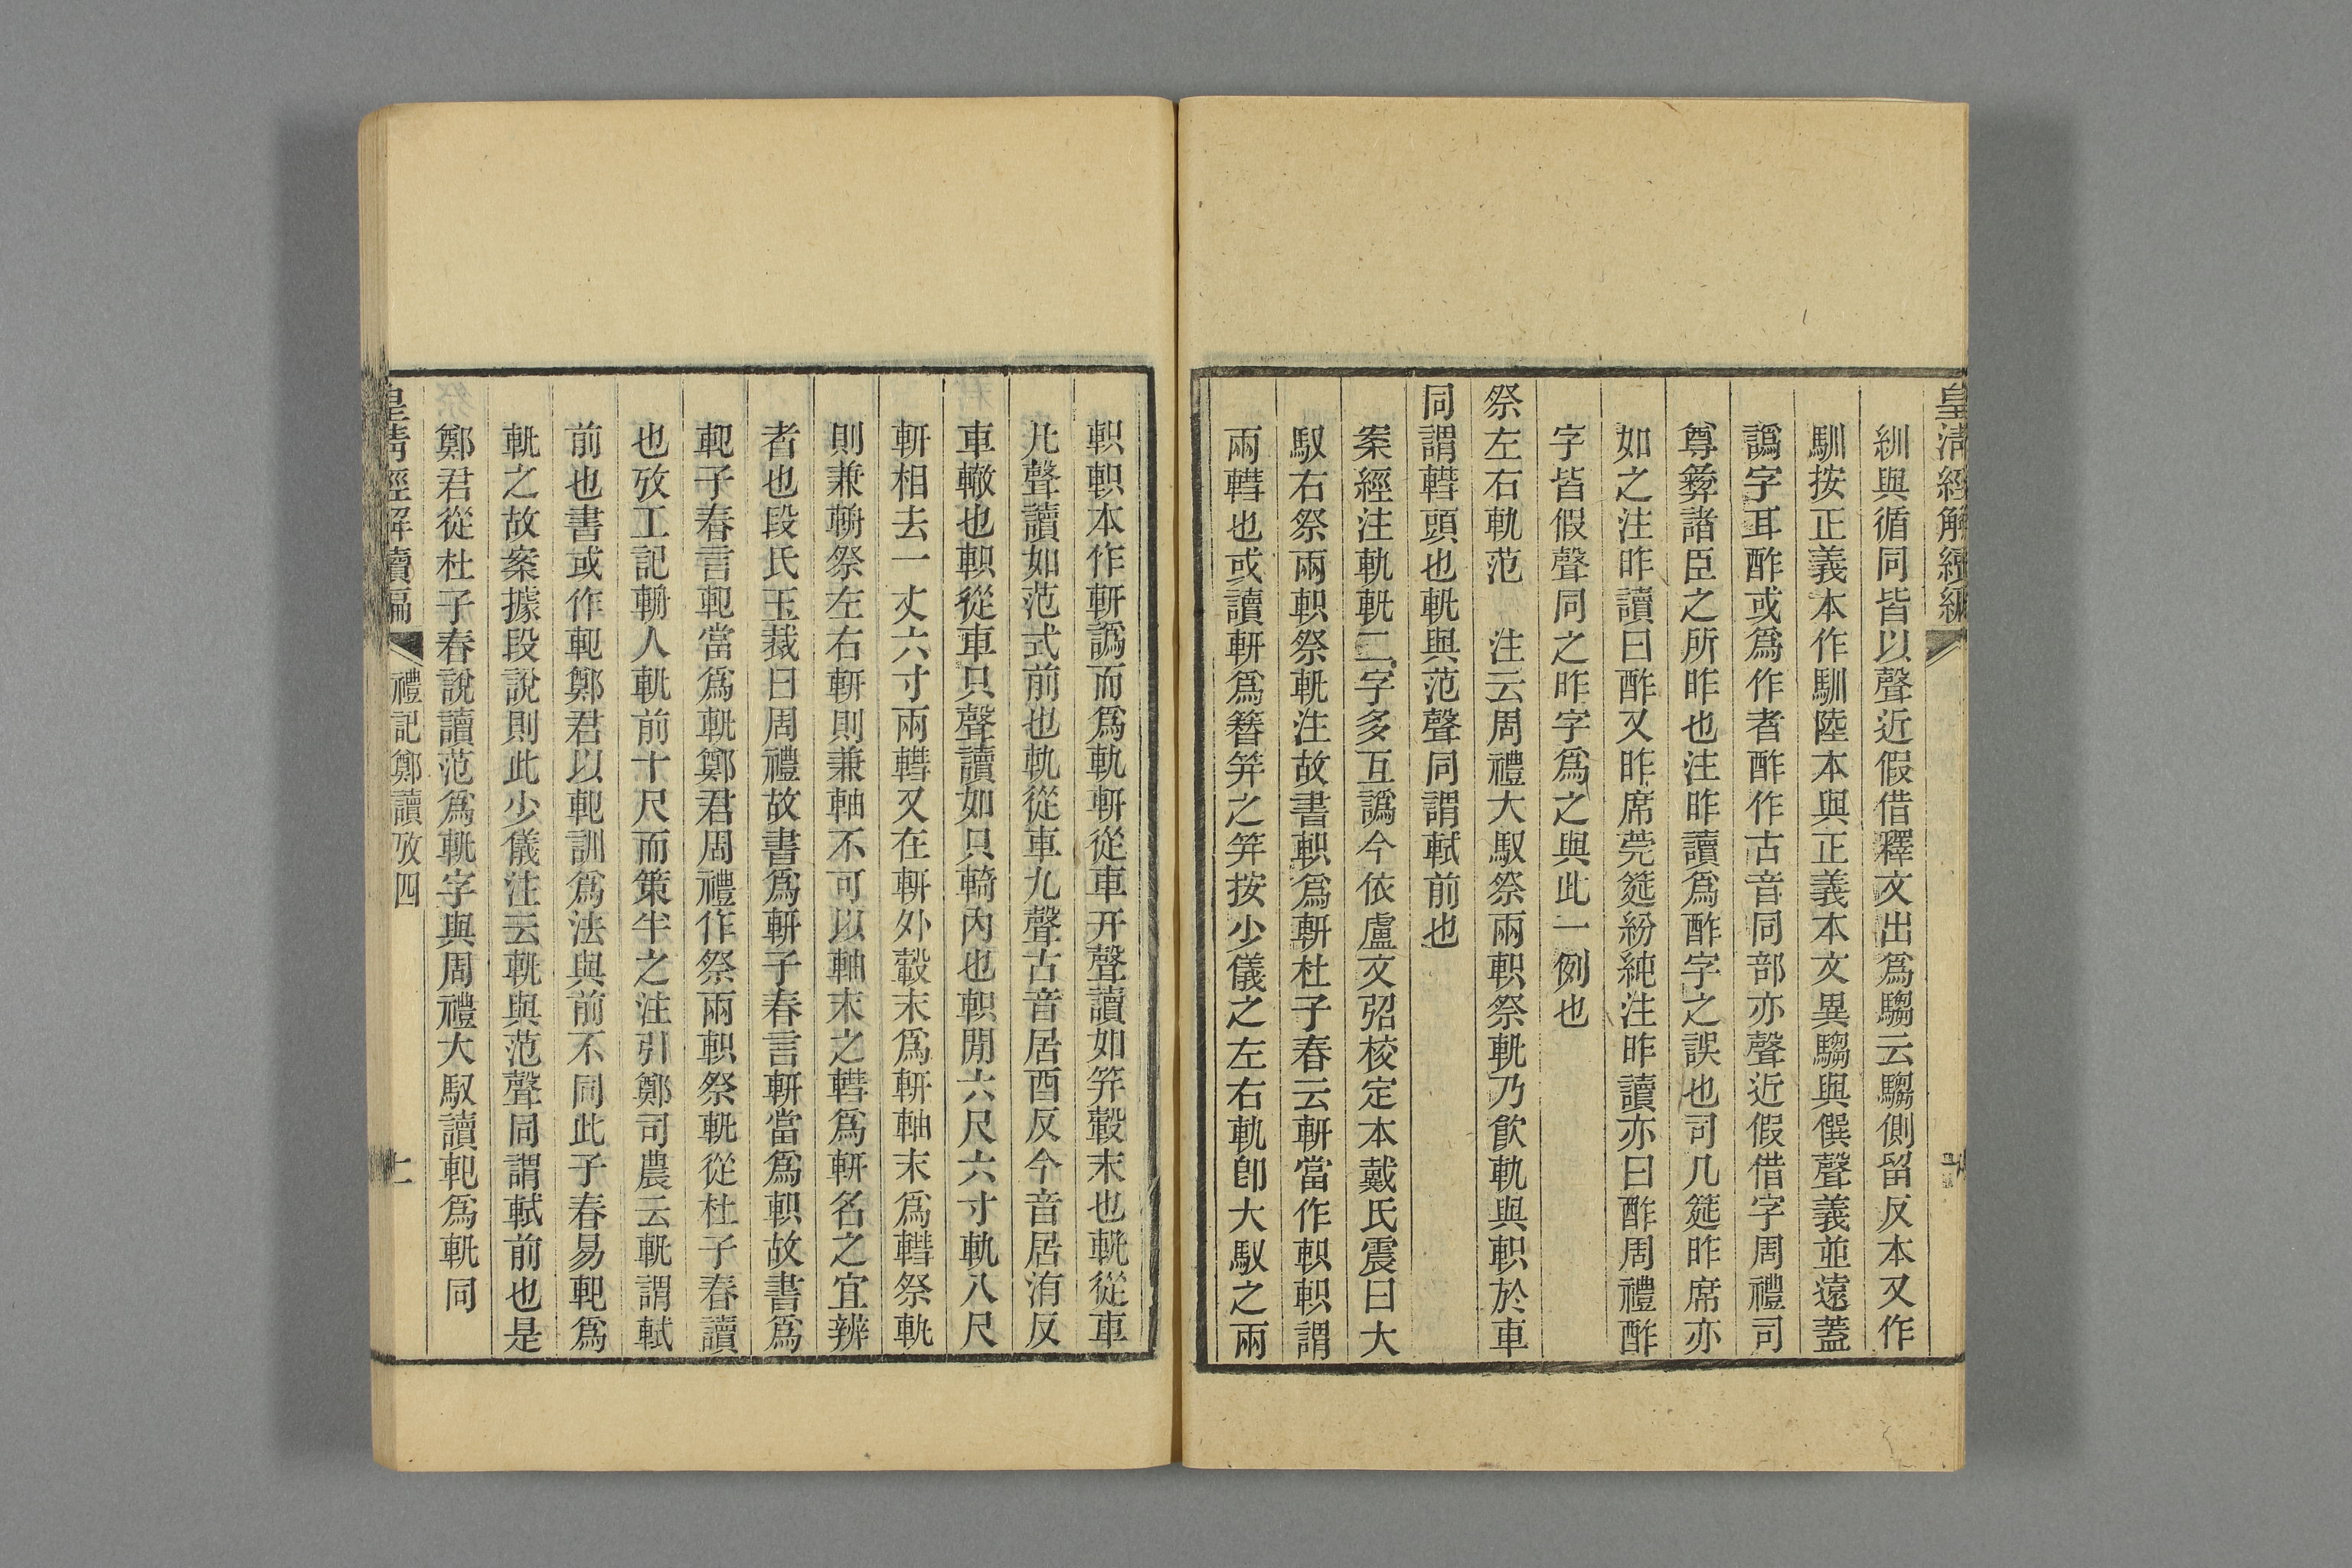 皇清經解續編
紃與循同皆以聲近假借釋文出爲騶云騶側留反本又作
馴按正義本作馴陸本與正義本文異騶與僎聲義並遠蓋
譌字耳酢或爲作者酢作古音同部亦聲近假借字周禮司
尊彝諸臣之所昨也注昨讀爲酢字之誤也司几筵昨席亦
如之注昨讀曰酢又昨席莞筵紛純注昨讀亦曰酢周禮酢
字皆假聲同之昨字爲之與此一例也
祭左右軌范　注云周禮大馭祭兩軹祭軓乃飮軌與軹於車
同謂轊頭也軓與范聲同謂軾前也
案經注軌軓二字多互譌今依盧文弨校定本戴氏震曰大
馭右祭兩軹祭軓注故書軹爲軿杜子春云軿當作軹軹謂
兩轊也或讀軿爲簪笄之笄按少儀之左右軌卽大馭之兩
軹軹本作軿譌而爲軌軿從車幵聲讀如笄轂末也軓從車
凡聲讀如范式前也軌從車九聲古音居酉反今音居洧反
車轍也軹從車只聲讀如只輢內也軹閒六尺六寸軌八尺
軿相去一丈六寸兩轊又在軿外轂末爲軿軸末爲轊祭軓
則兼輈祭左右軿則兼軸不可以軸末之轊爲軿名之宜辨
者也段氏玉裁曰周禮故書爲軿子春言軿當爲軹故書爲
軋子春言軋當爲軓鄭君周禮作祭兩軹祭軓從杜子春讀
也攷工記輈人軓前十尺而策半之注引鄭司農云軓謂軾
前也書或作軋鄭君以軋訓爲法與前不同此子春易軋爲
軓之故案據段說則此少儀注云軓與范聲同謂軾前也是
鄭君從杜子春說讀范爲軓字與周禮大馭讀軋爲軓同
皇清經解續編　禮記鄭讀攷四